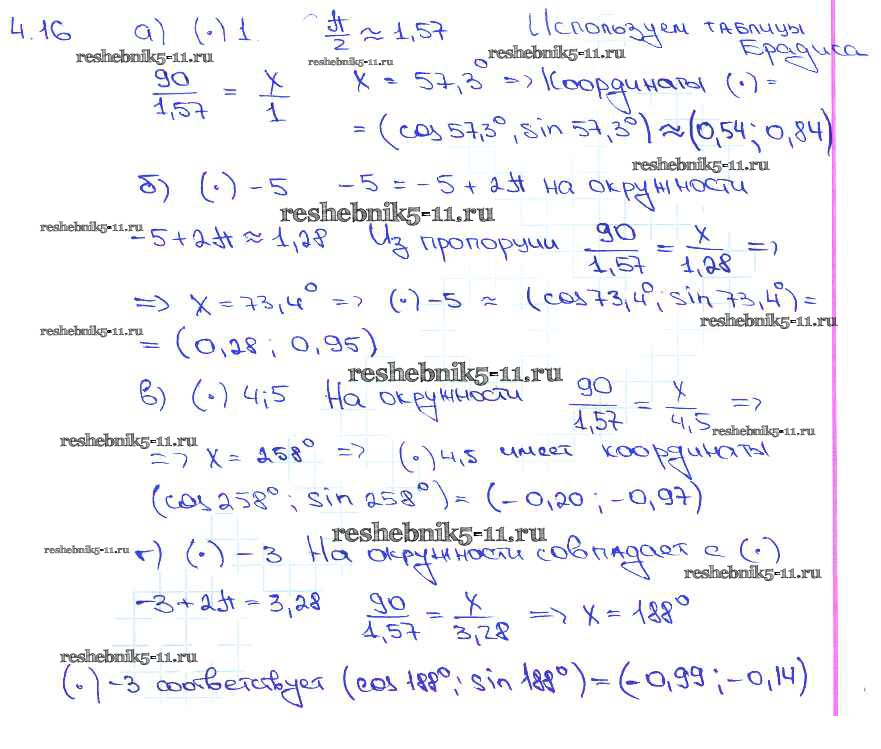 4.16 а) (·) 1. π/2 ≈ 1,57 Используем таблицы
Брадиса
reshebnik5-11.ru reshebnik5-11.ru reshebnik5-11.ru
90/1,57 = x/1 x = 57,3° => Координаты (·) =
= (cos 57,3°, sin 57,3°) ≈ (0,54; 0,84)
reshebnik5-11.ru
б) (·) -5 -5 = -5 + 2π на окружности
reshebnik5-11.ru reshebnik5-11.ru
-5+2π ≈ 1,28 Из пропорции 90/1,57 = x/1,28 =>
=> x = 73,4° => (·) -5 ≈ (cos 73,4°; sin 73,4°) =
reshebnik5-11.ru reshebnik5-11.ru
= (0,28; 0,95)
reshebnik5-11.ru
в) (·) 4;5 На окружности 90/1,57 = x/4,5 =>
reshebnik5-11.ru reshebnik5-11.ru
=> x = 258° => (·) 4,5 имеет координаты
(cos 258°; sin 258°) = (-0,20; -0,97)
reshebnik5-11.ru
reshebnik5-11.ru г) (·) -3 На окружности совпадает с (·)
reshebnik5-11.ru
-3+2π = 3,28 90/1,57 = x/3,28 => x = 188°
reshebnik5-11.ru
(·) -3 соответствует (cos 188°; sin 188°) = (-0,99; -0,14)